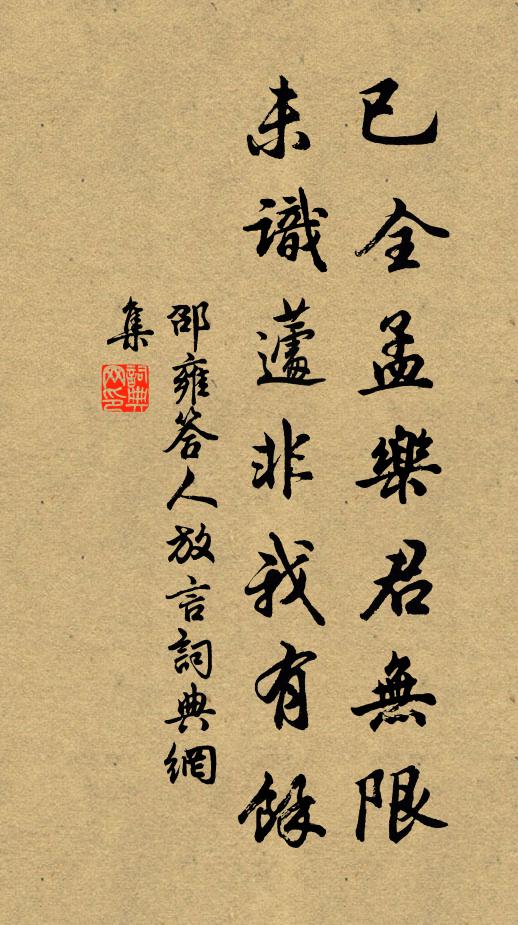 已全孟樂君無限
未識蘧非我有餘
邵雍答人放言詞典網
集
詞典
网印